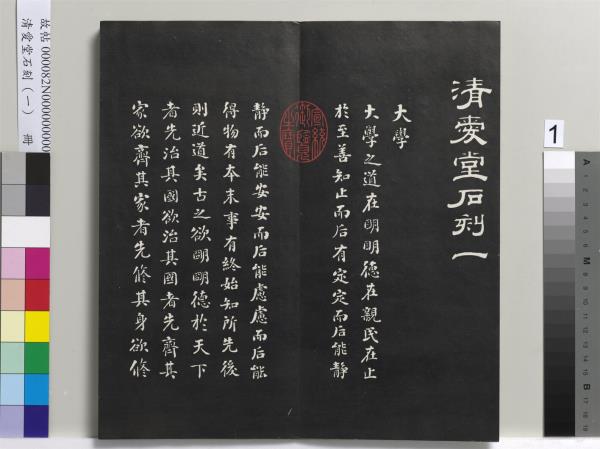 清愛堂石刻一
大學
大學之道在明明德在親民在止
於至善知止而后有定定而后能靜
靜而后能安安而后能慮慮而后能
得物有本末事有終始知所先後
則近道矣古之欲明明德於天下
者先治其國欲治其國者先齊其
家欲齊其家者先修其身欲修
宣統御覽之寶
故帖 000082N000000000
清愛堂石刻(一) 冊
1
A
1
2
3
4
5
6
M
8
9
10
11
12
13
14
15
B
17
18
19